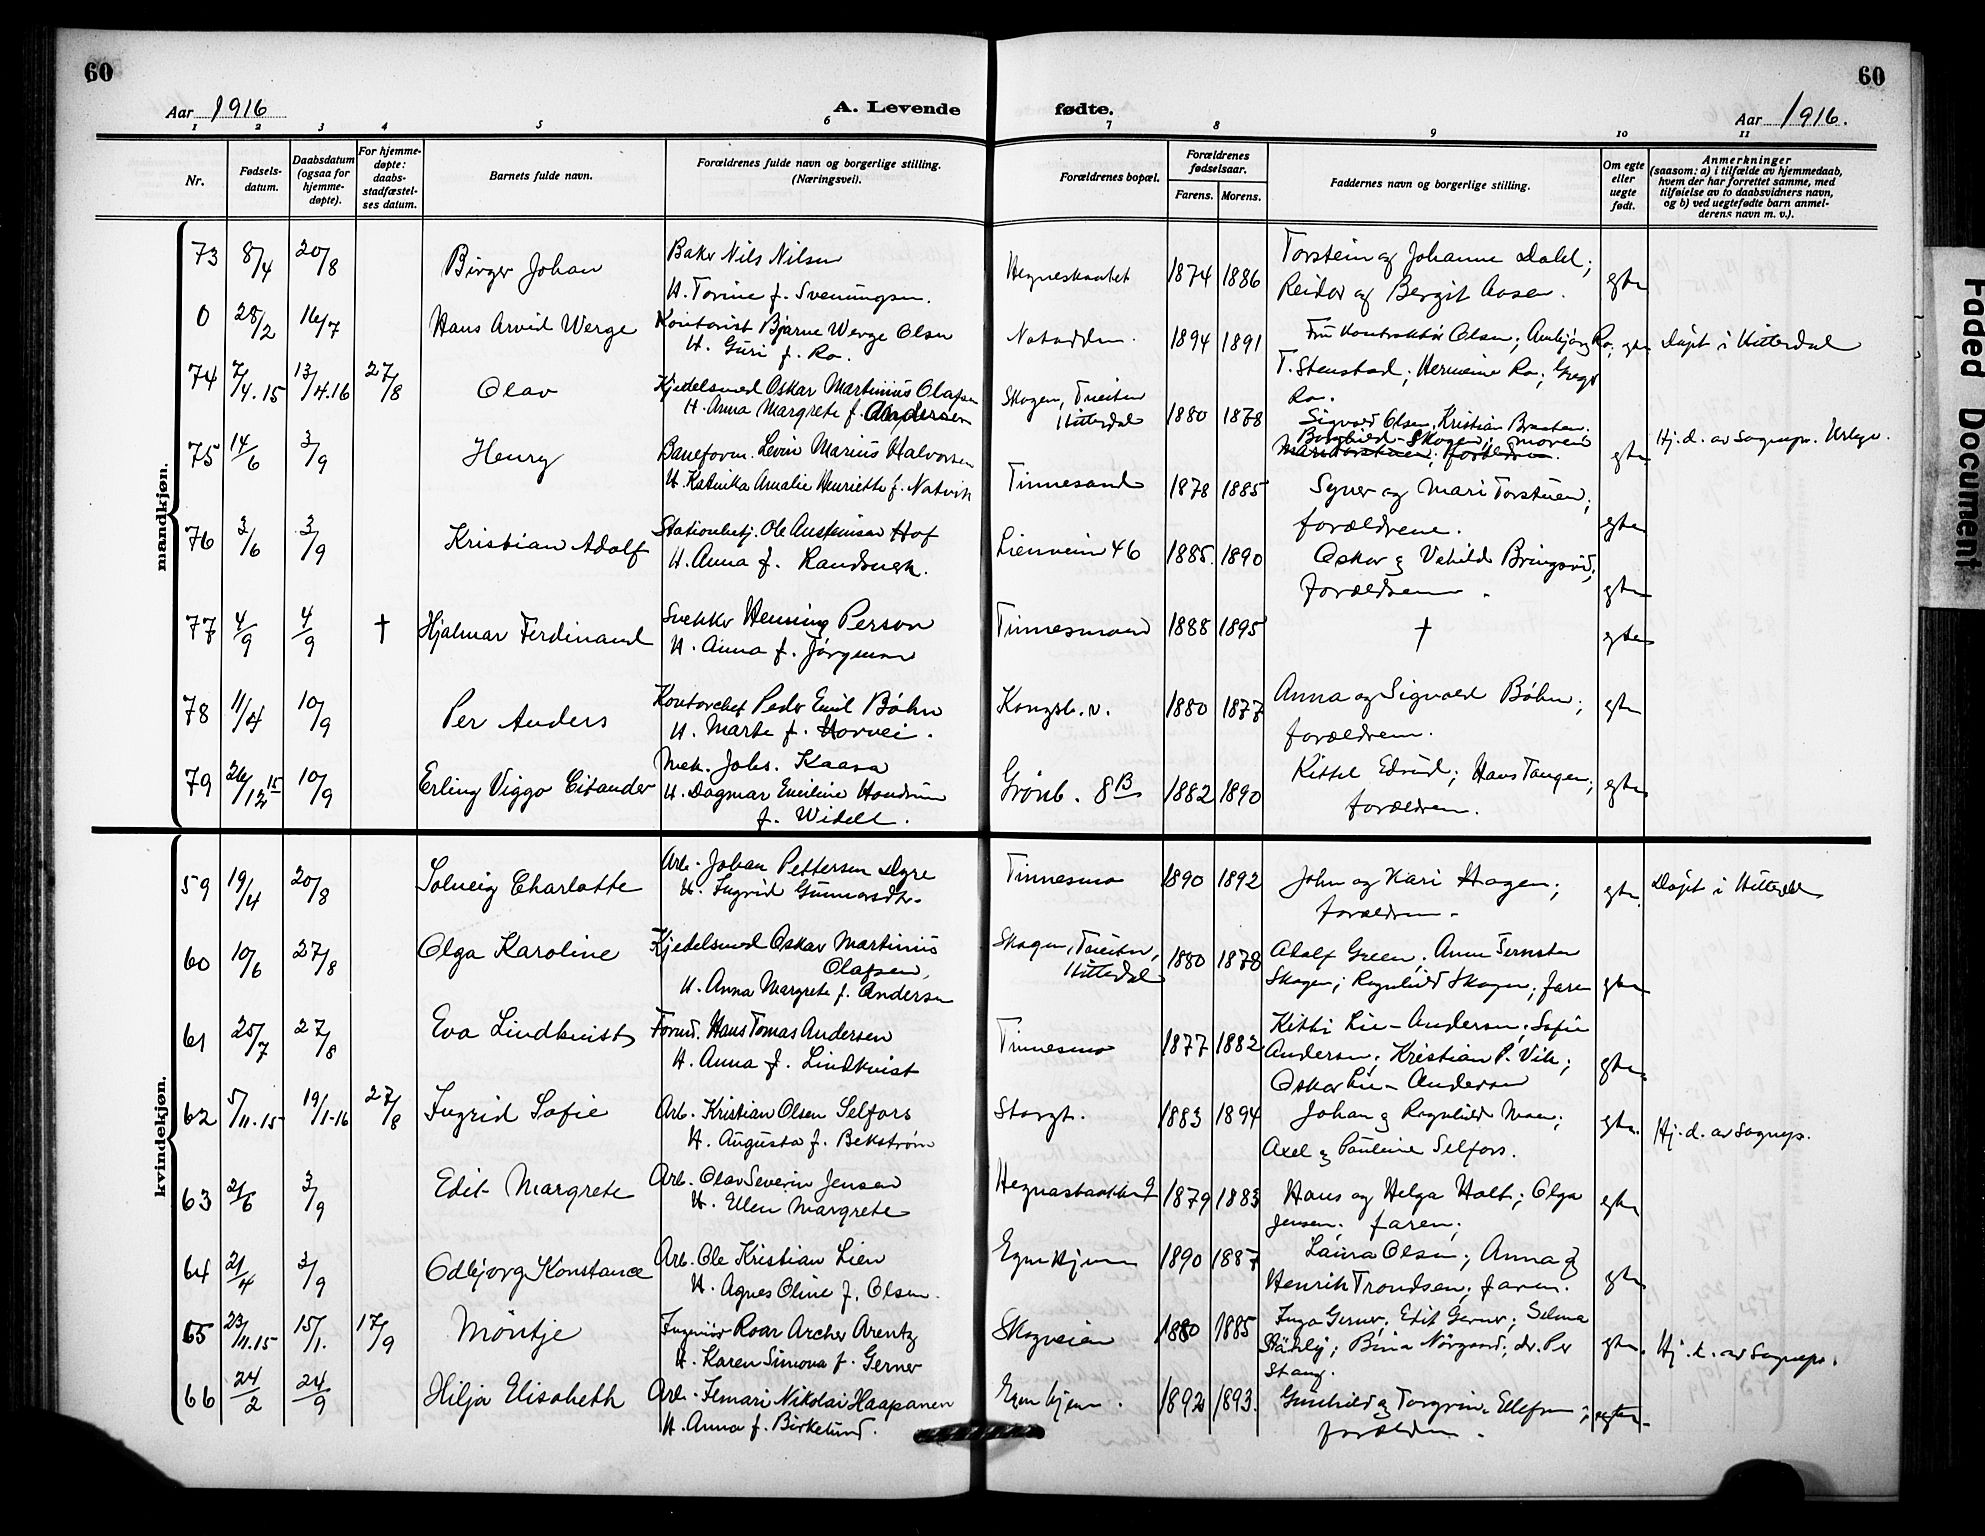 60
60
Aar 1916
A. Levende fødte.
Aar 1916.
1 2 3 4 5 6 7 8 9 10 11
Nr.
Fødsels-
datum.
Daabsdatum
(ogsaa for
hjemme-
døpte).
For hjemme-
døpte:
daabs-
stadfæstel-
ses datum.
Barnets fulde navn.
Forældrenes fulde navn og borgerlige stilling.
(Næringsvei).
Forældrenes bopæl.
Forældrenes
fødselsaar.
Farens. Morens.
Faddernes navn og borgerlige stilling.
Om egte
eller
uegte
født.
Anmerkninger
(saasom: a) i tilfælde av hjemmedaab,
hvem der har forrettet samme, med
tilføielse av to daabsvidners navn,
og b) ved uegtefødte barn anmel-
derens navn m. v.).
mandkjøn.
73 8/4 20/8 Birger Johan
Baker Nils Nilsen
H. Torine f. Sveningsen.
1874 1886
Torstein og Johanne Dahl;
Reidar og Bergit Aasen.
egte
0 28/2 16/7 Hans Arvid Werge
Kontorist Bjarne Werge Olsen
H. Guri f. Ra.
Notodden. 1894 1891
Fru Kontraktør Olsen; Ambjørg Ra;
T. Stenstad; Hermine Ra; Gregr
Ra.
egte Døpt i Hitterdal
74 7/4.15 13/4.16 27/8 Olav
Kjedelsmed Oskar Martinius Olafsen
H. Anna Margrete f. Andersen
Skogen, Tveiten
Hitterdal
1880 1878
Sigvard Olsen, Kristian Braaten.
Borghild Skogen; moren
egte Hj. d. av Sognepr.
75 14/6 3/9 Henry
Baneform. Levin Marius Halvorsen
H. Katinka Amalie Henriette f. Natvik
Tinnesand 1878 1885
Syver og Mari Torstuen;
forældrene.
egte
76 3/6 3/9 Kristian Adolf
Stationsbetj. Ole Austensen Hof
H. Anna f. Randsverk.
Lienveien 46 1885. 1890
Oskar og Valhild Bringsrud;
forældrene.
egte
77 4/9 4/9 † Hjalmar Ferdinand
Snekker Henning Person
H. Anna f. Jørgensen
Tinnesmoen 1888 1895 † egte
78 11/4 10/9 Per Anders
Kontorchef Peder Emil Bøhn
H. Marte f. Horvei.
Kongsb. v. 1880 1877
Anna og Sigvald Bøhn;
forældrene.
egte
79 26/12 15 10/9 Erling Viggo Citander
Mek. Johs. Kaasa
H. Dagmar Emiline
f. Widell.
Grønb. 8B 1882 1890
Kittel Edsrud; Hans Tangen;
forældrene.
egte
kvindekjøn.
59 19/4 20/8 Solveig Charlotte
Arb. Johan Pettersen Dyre
H. Ingrid Gunnarsdtr.
Tinnesmo 1890 1892
John og Kari Hagen;
forældrene.
egte. Døpt i Hitterdal
60 10/6 27/8 Olga Karoline
Kjedelsmed Oskar Martinius
Olafsen,
H. Anna Margrete f. Andersen
Skogen, Tveiten,
Hitterdal
1880 1878
Adolf Green; Anne Jernsten
Skogen; Ragnhild Skogen; faren
egte
61 25/7 27/8 Eva Lindkvist
Formd. Hans Tomas Andersen
H. Anna f. Lindkvist
Tinnesmo 1877 1882
Kitti Lie-Andersen; Sofie
Andersen; Kristian P. Vik;
Oskar Lie-Andersen
egte.
62 5/11.15 19/1-16 27/8 Ingrid Sofie
Arb. Kristian Olsen Selfors
H. Augusta f. Bekstrøm
Storgt. 1883 1894
Johan og Ragnhild Moen;
Axel og Pauline Selfors.
egte. Hj. d. av Sognepr.
63 21/6 3/9 Edit Margrete
Arb. Olav Severin Jensen
H. Ellen Margrete
1879 1883
Hans og Helga Holt; Olga
Jensen. faren.
egte
64 21/4 3/9 Odbjørg Konstance
Arb. Ole Kristian Lien
H. Agnes Oline f. Olsen.
Egnehjem 1890 1887
Laura Olsen; Anna og
Henrik Trondsen; faren.
egte
65 23/11.15 15/1. 17/9 Möntje
Ingeniør Roar Archer Arentz
H. Karen Simona f. Gerner
Skogveien 1880 1885
Inga Gerner; Edit Gerner; Selma
Ståhly; Bina Nørgaard; dr. Per
Stang.
egte. Hj. d. av Sognepr.
66 24/2 24/9 Hilja Elisabeth
Arb. Ilmari Nikolai Haapanen
H. Anna f. Birkelund.
Egnehjem. 1892 1893.
Gunhild og Torgrim Ellefsen;
forældrene.
egte.
Faded Document